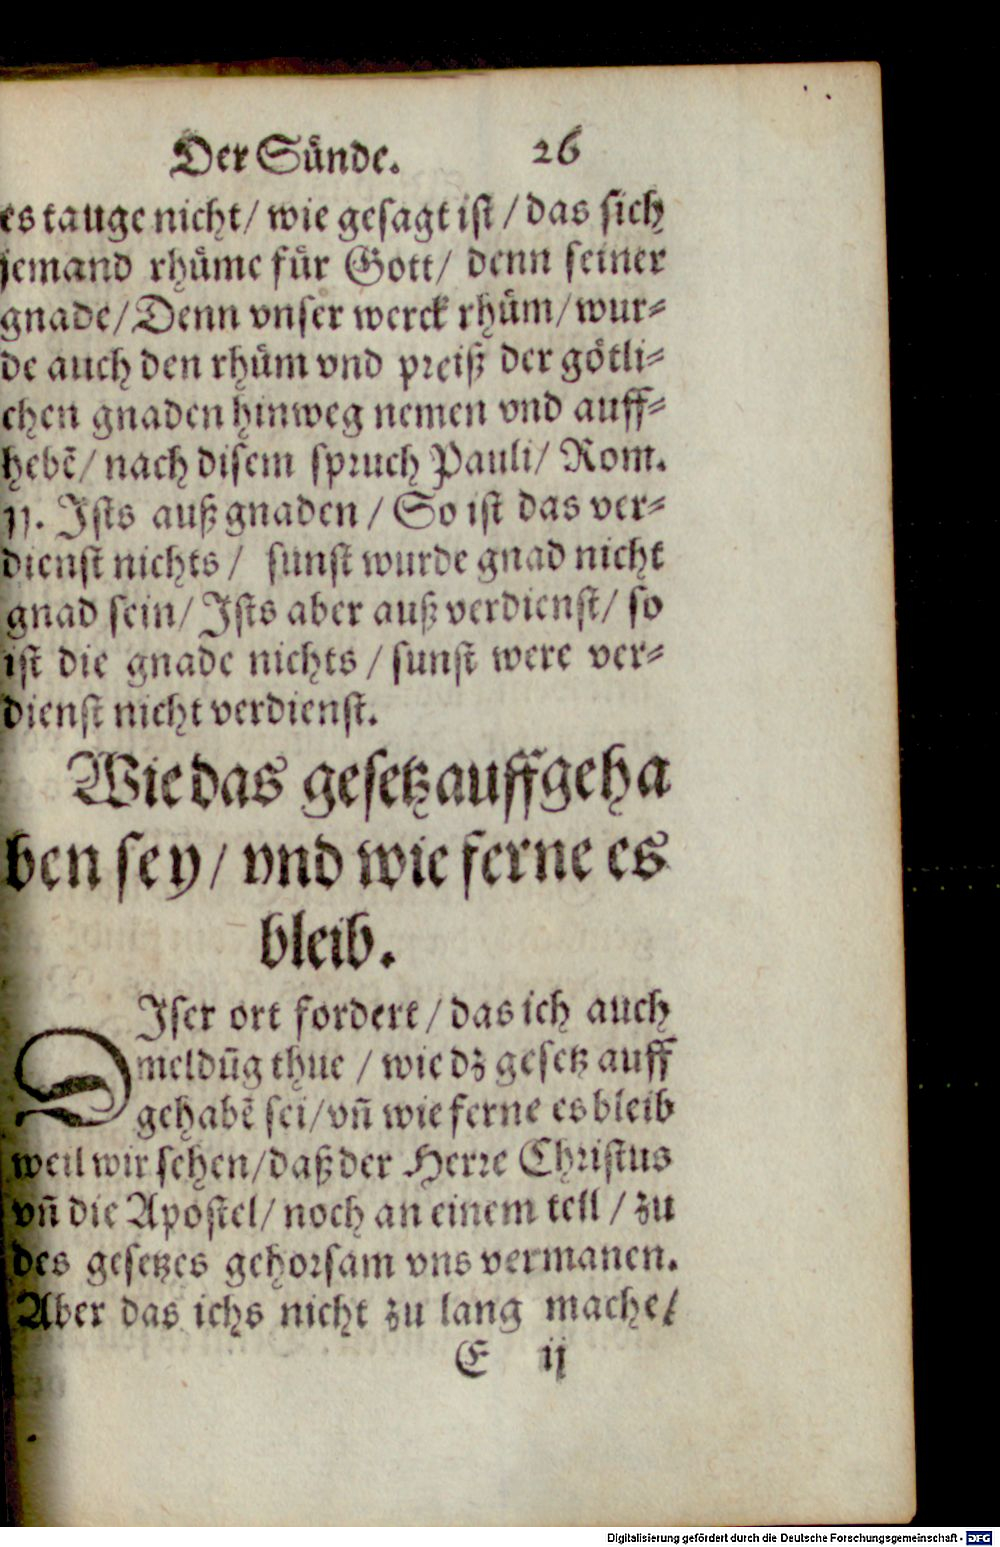 Der Sünde. 26
es tauge nicht / wie gesagt ist / das sich
jemand rhüme für Gott / denn seiner
gnade / Denn vnser werck rhüm / wur⸗
de auch den rhüm vnd preiß der götli⸗
chen gnaden hinweg nemen vnd auff⸗
hebē / nach disem spruch Pauli / Rom.
11. Ists auß gnaden / So ist das ver⸗
dienst nichts / sunst wurde gnad nicht
gnad sein / Ists aber auß verdienst / so
ist die gnade nichts / sunst were ver⸗
dienst nicht verdienst.
Wie das gesetz auffgeha
ben sey / vnd wie ferne es
bleib.
DIser ort fordert / das ich auch
meldūg thue / wie dz gesetz auff
gehabē sei / vn̄ wie ferne es bleib
weil wir sehen / daß der Herre Christus
vn̄ die Apostel / noch an einem teil / zu
des gesetzes gehorsam vns vermanen.
Aber das ichs nicht zu lang mache /
E ij
Digitalisierung gefördert durch die Deutsche Forschungsgemeinschaft - DFG